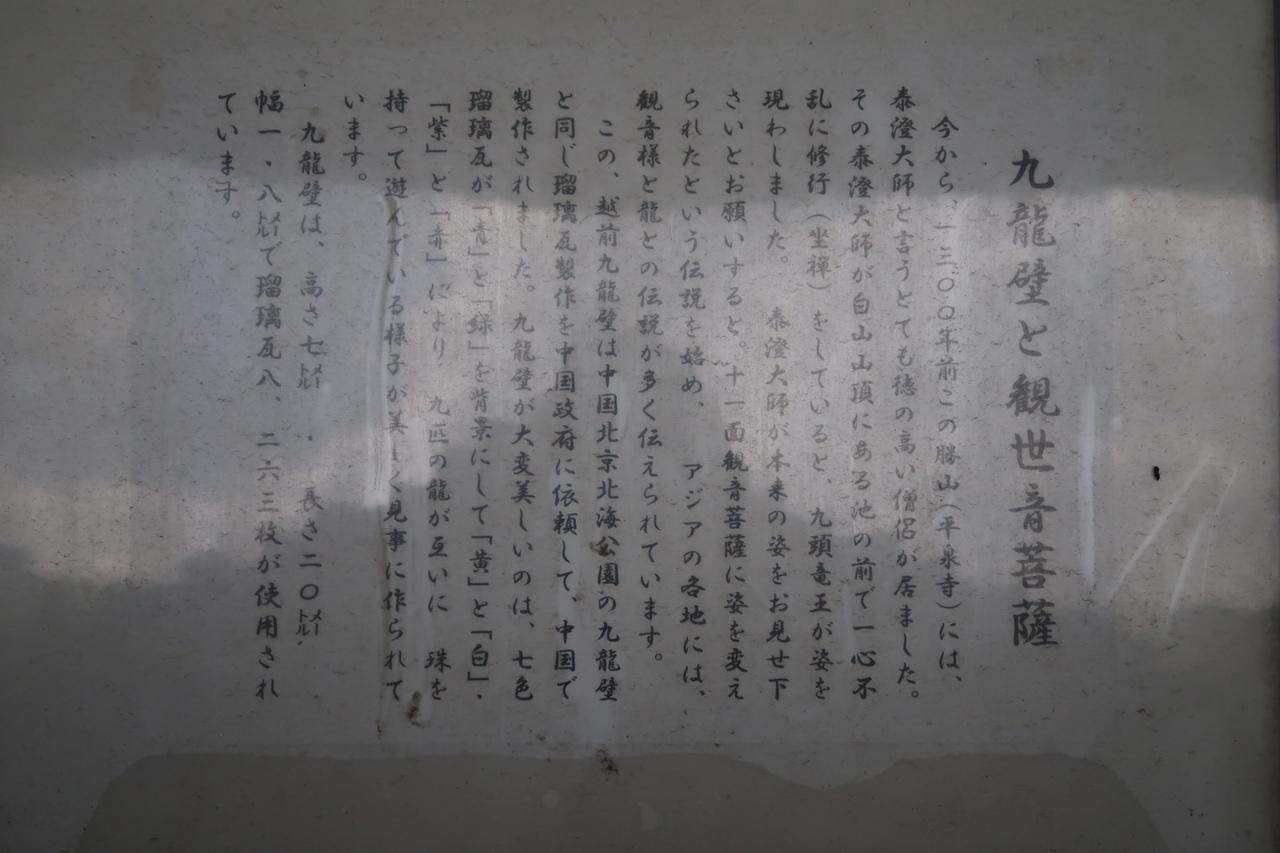 九龍壁と観世音菩薩
今から、一三〇〇年前この勝山（平泉寺）には、
泰澄大師と言うとても徳の高い僧侶が居ました。
その泰澄大師が白山山頂にある池の前で一心不
乱に修行（坐禅）をしていると、九頭竜王が姿を
現わしました。泰澄大師が本来の姿をお見せ下
さいとお願いすると。十一面観音菩薩に姿を変え
られたという伝説を始め、アジアの各地には、
観音様と龍との伝説が多く伝えられています。
この、越前九龍壁は中国北京北海公園の九龍壁
と同じ瑠璃瓦製作を中国政府に依頼して、中国で
製作されました。九龍壁が大変美しいのは、七色
瑠璃瓦が「青」と「緑」を背景にして「黄」と「白」・
「紫」と「赤」により 九匹の龍が互いに 珠を
持って遊んでいる様子が美しく見事に作られて
います。
九龍壁は、高さ七メートル・長さ二〇メートル・
幅一・八メートルで瑠璃瓦八、二六三枚が使用され
ています。